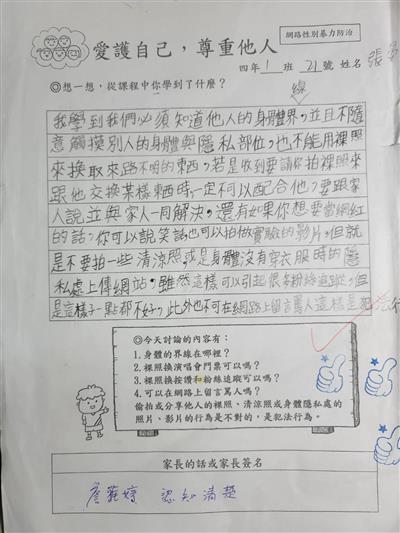 網路性別暴力防治
愛護自己，尊重他人
四年 1 班 21 號 姓名 張
◎想一想，從課程中你學到了什麼？
線
我學到我們必須知道他人的身體界，並且不隨
意觸摸別人的身體與隱私部位，也不能用裸照
來換取來路不明的東西，若是收到要請你拍裸照來
跟他交換某樣東西時，一定不可以配合他，要跟家
人說並與家人一同解決，還有如果你想要當網紅
的話，你可以說笑話也可以拍做實驗的影片，但就
是不要拍一些清涼照，或是身體沒有穿衣服時的隱
私處上傳網站，雖然這樣可以引起很多粉絲追蹤，但
是這樣子一點都不好，此外也不可在網路上留言罵人這樣是
◎今天討論的內容有：
1.身體的界線在哪裡？
2.裸照換演唱會門票可以嗎？
3.裸照換按讚和粉絲追蹤可以嗎？
4.可以在網路上留言罵人嗎？
偷拍或分享他人的裸照、清涼照或身體隱私處的
照片、影片的行為是不對的，是犯法行為。
家長的話或家長簽名
認知清楚